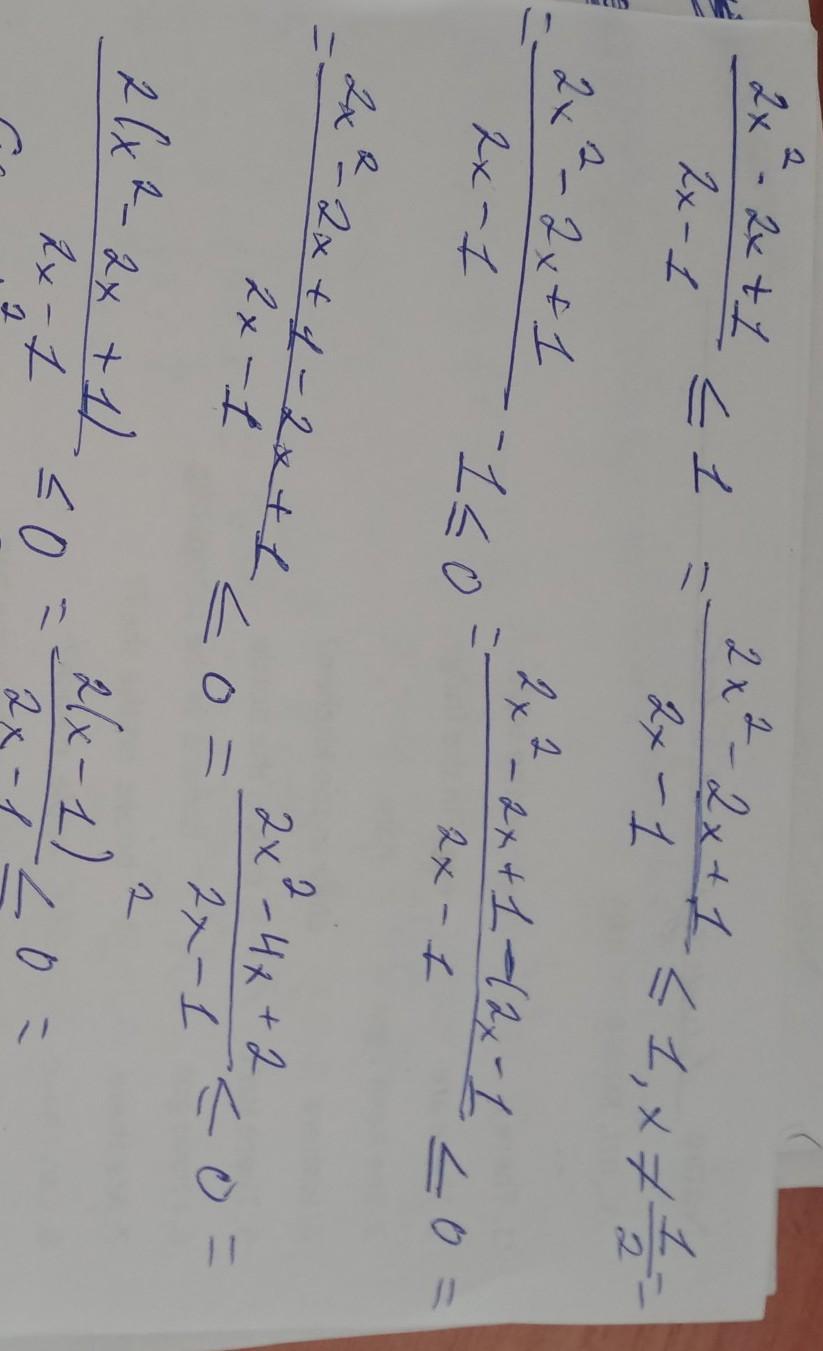 2x² - 2x + 1 / 2x - 1 ≤ 1 = 2x² - 2x + 1 / 2x - 1 ≤ 1, x ≠ 1/2 =
= 2x² - 2x + 1 / 2x - 1 - 1 ≤ 0 = 2x² - 2x + 1 - (2x - 1 / 2x - 1 ≤ 0 =
= 2x² - 2x + 1 - 2x + 1 / 2x - 1 ≤ 0 = 2x² - 4x + 2 / 2x - 1 ≤ 0 =
2(x² - 2x + 1) / 2x - 1 ≤ 0 = 2(x - 1)² / 2x - 1 ≤ 0 =